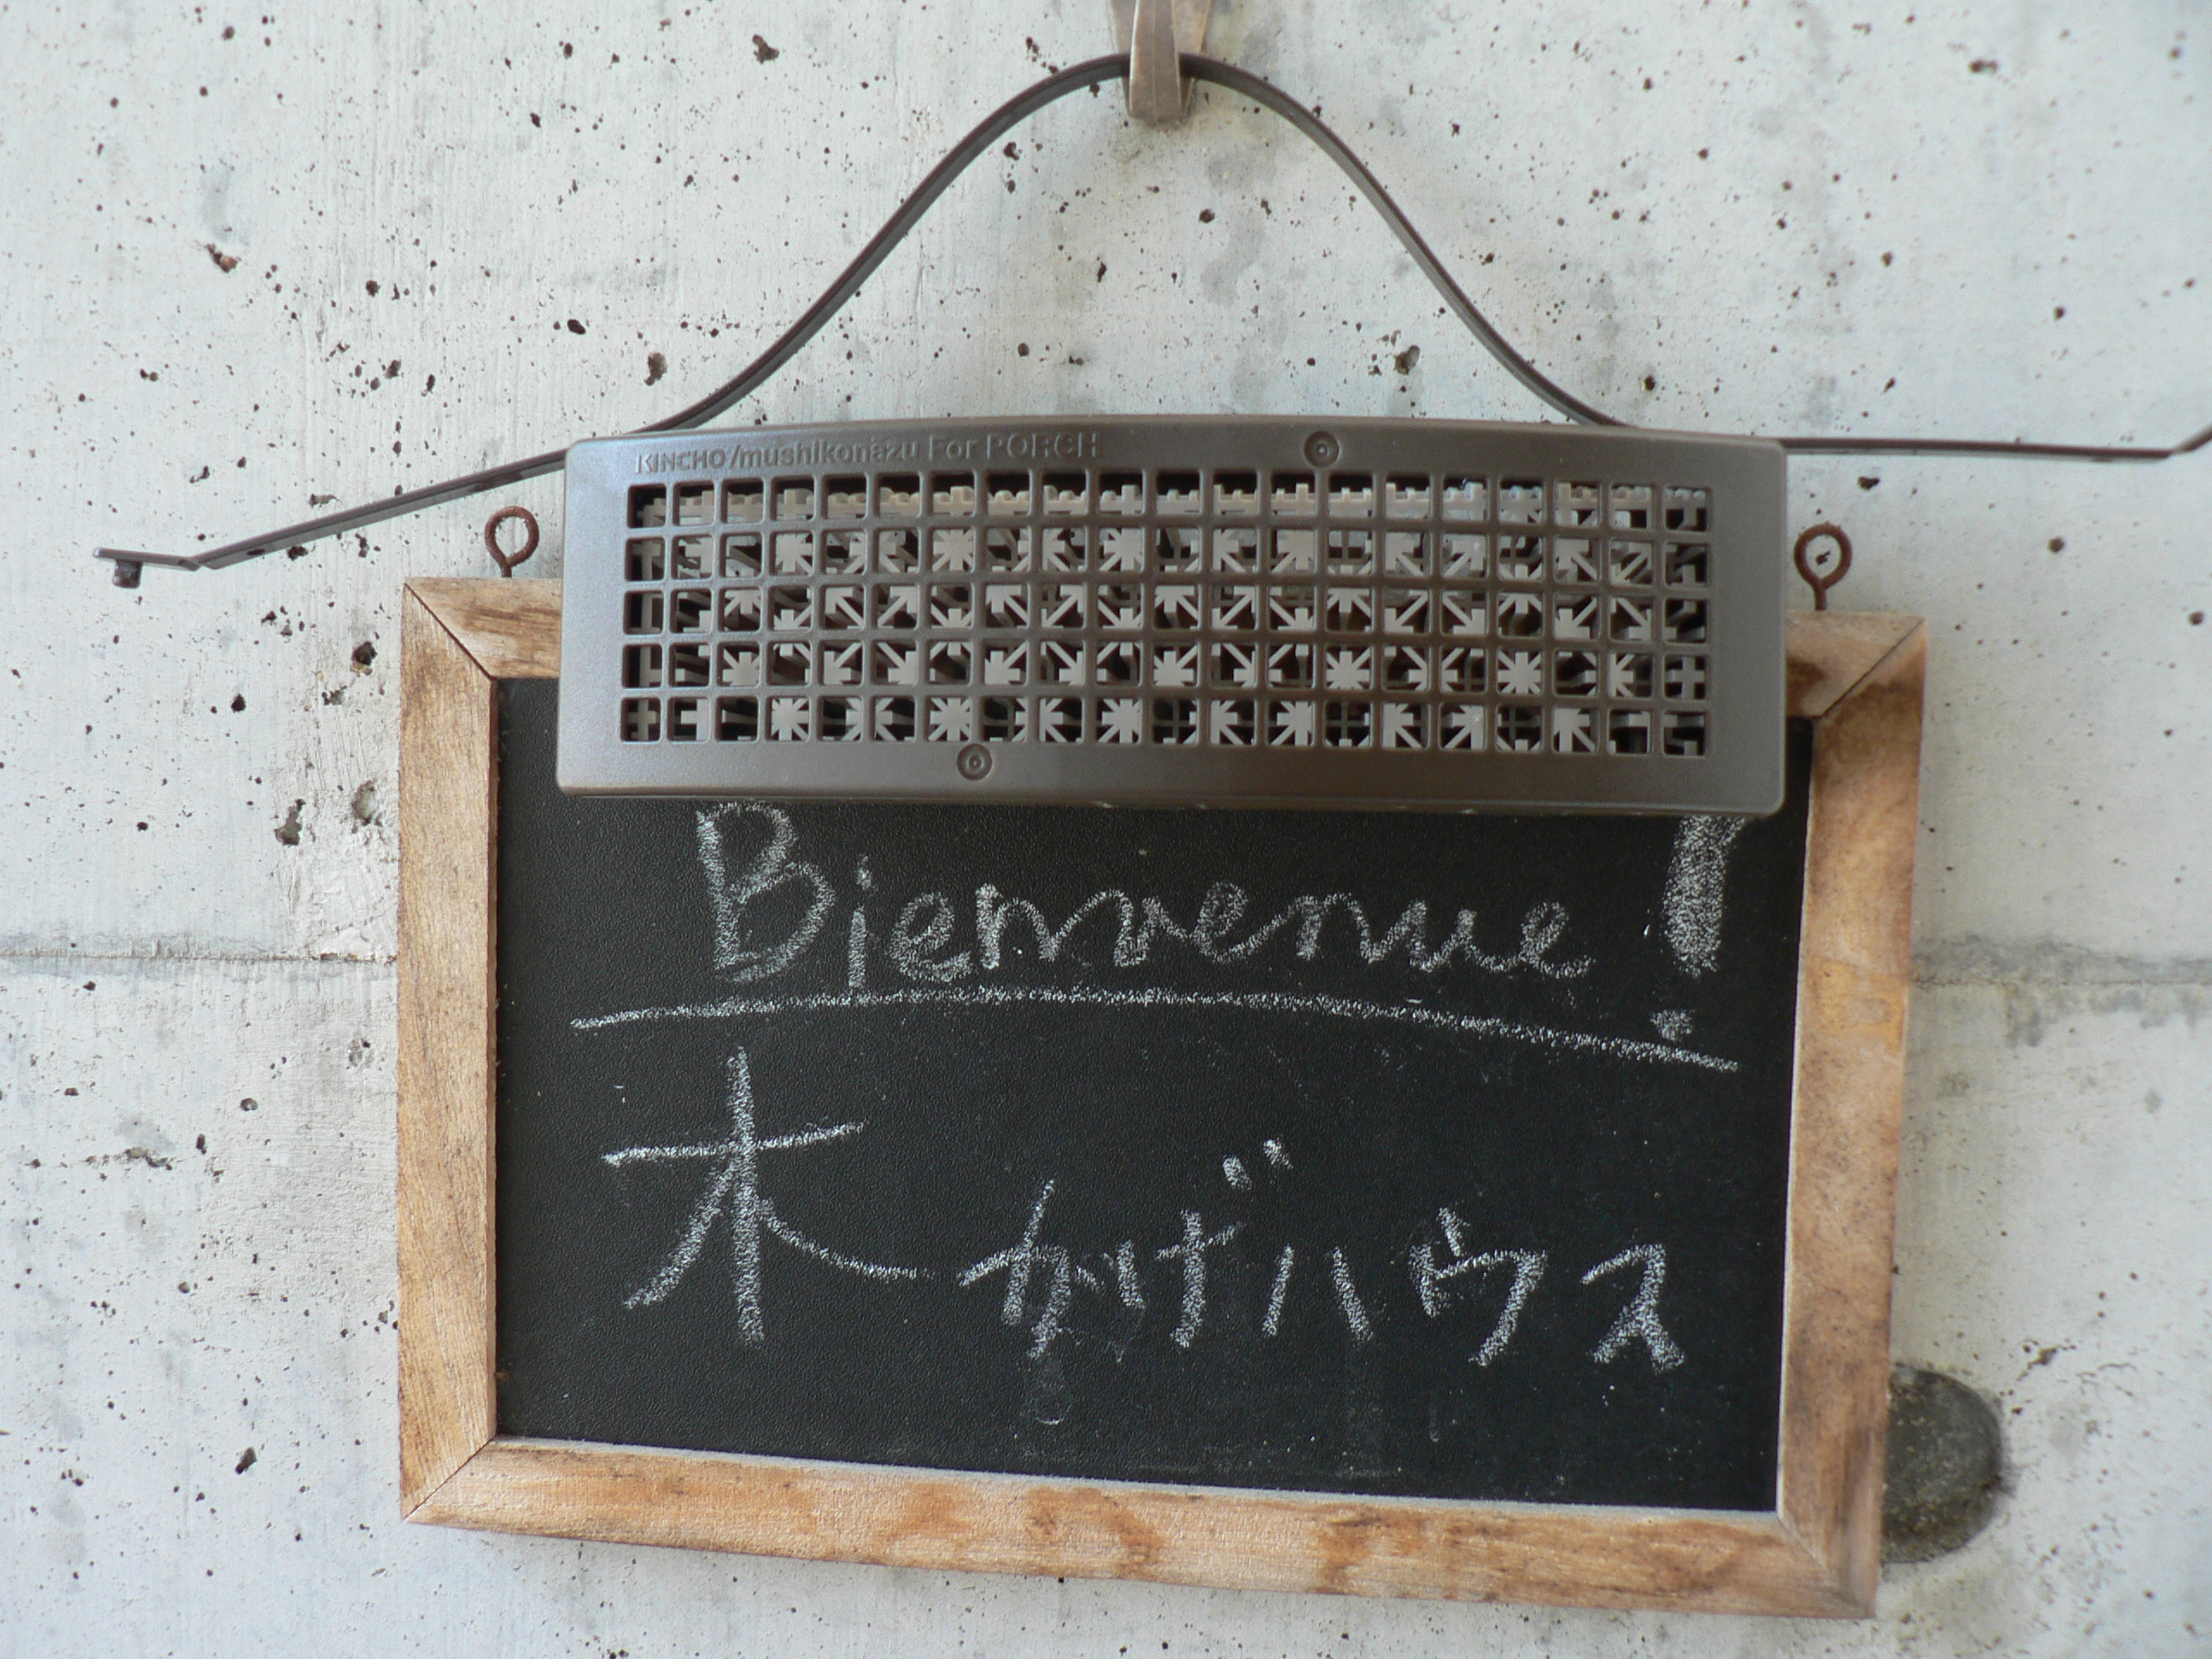 KINCHO/mushikonazu For PORCH
Bienvenue!
木かげハウス